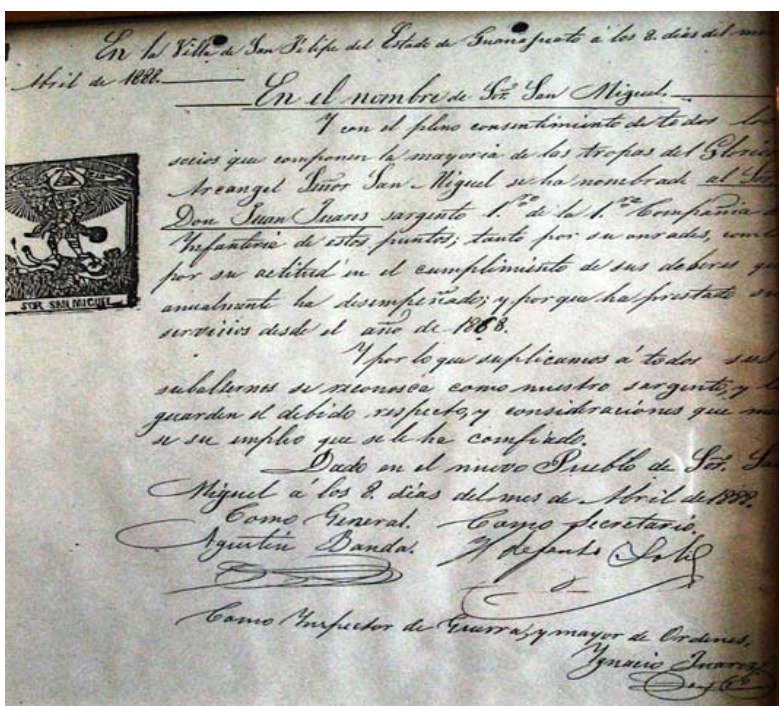 En la Villa de San Felipe del Estado de Guanajuato á los 8. dias del
Abril de 1888.
En el nombre de Sor. San Miguel.
Y con el pleno consentimiento de todos
socios que componen la mayoria de las tropas del
Arcangel Señor San Miguel se ha nombrado al
Don Juan Juares sargento 1.º de la 1.ra Compañia
Infanteria de estos puntos; tanto por su onrades, como
por su actitud en el cumplimiento de sus deberes
anualmente ha desempeñado; y porque ha prestado
servicios desde el año de 1868.
Y por lo que suplicamos á todos sus
subalternos se reconosca como nuestro sargento, y
guarden el debido respeto, y consideraciones que
se su empleo que se le ha comfiado.
Dado en el nuevo Pueblo de Sor.
Miguel á los 8. dias del mes de Abril de 1888.
Como General. Como Secretario.
Agustin Banda. Yldefonso Solis
Como Ynspector de Guerra, y mayor de Ordenes.
Ygnacio Juares
SOR SAN MIGUEL